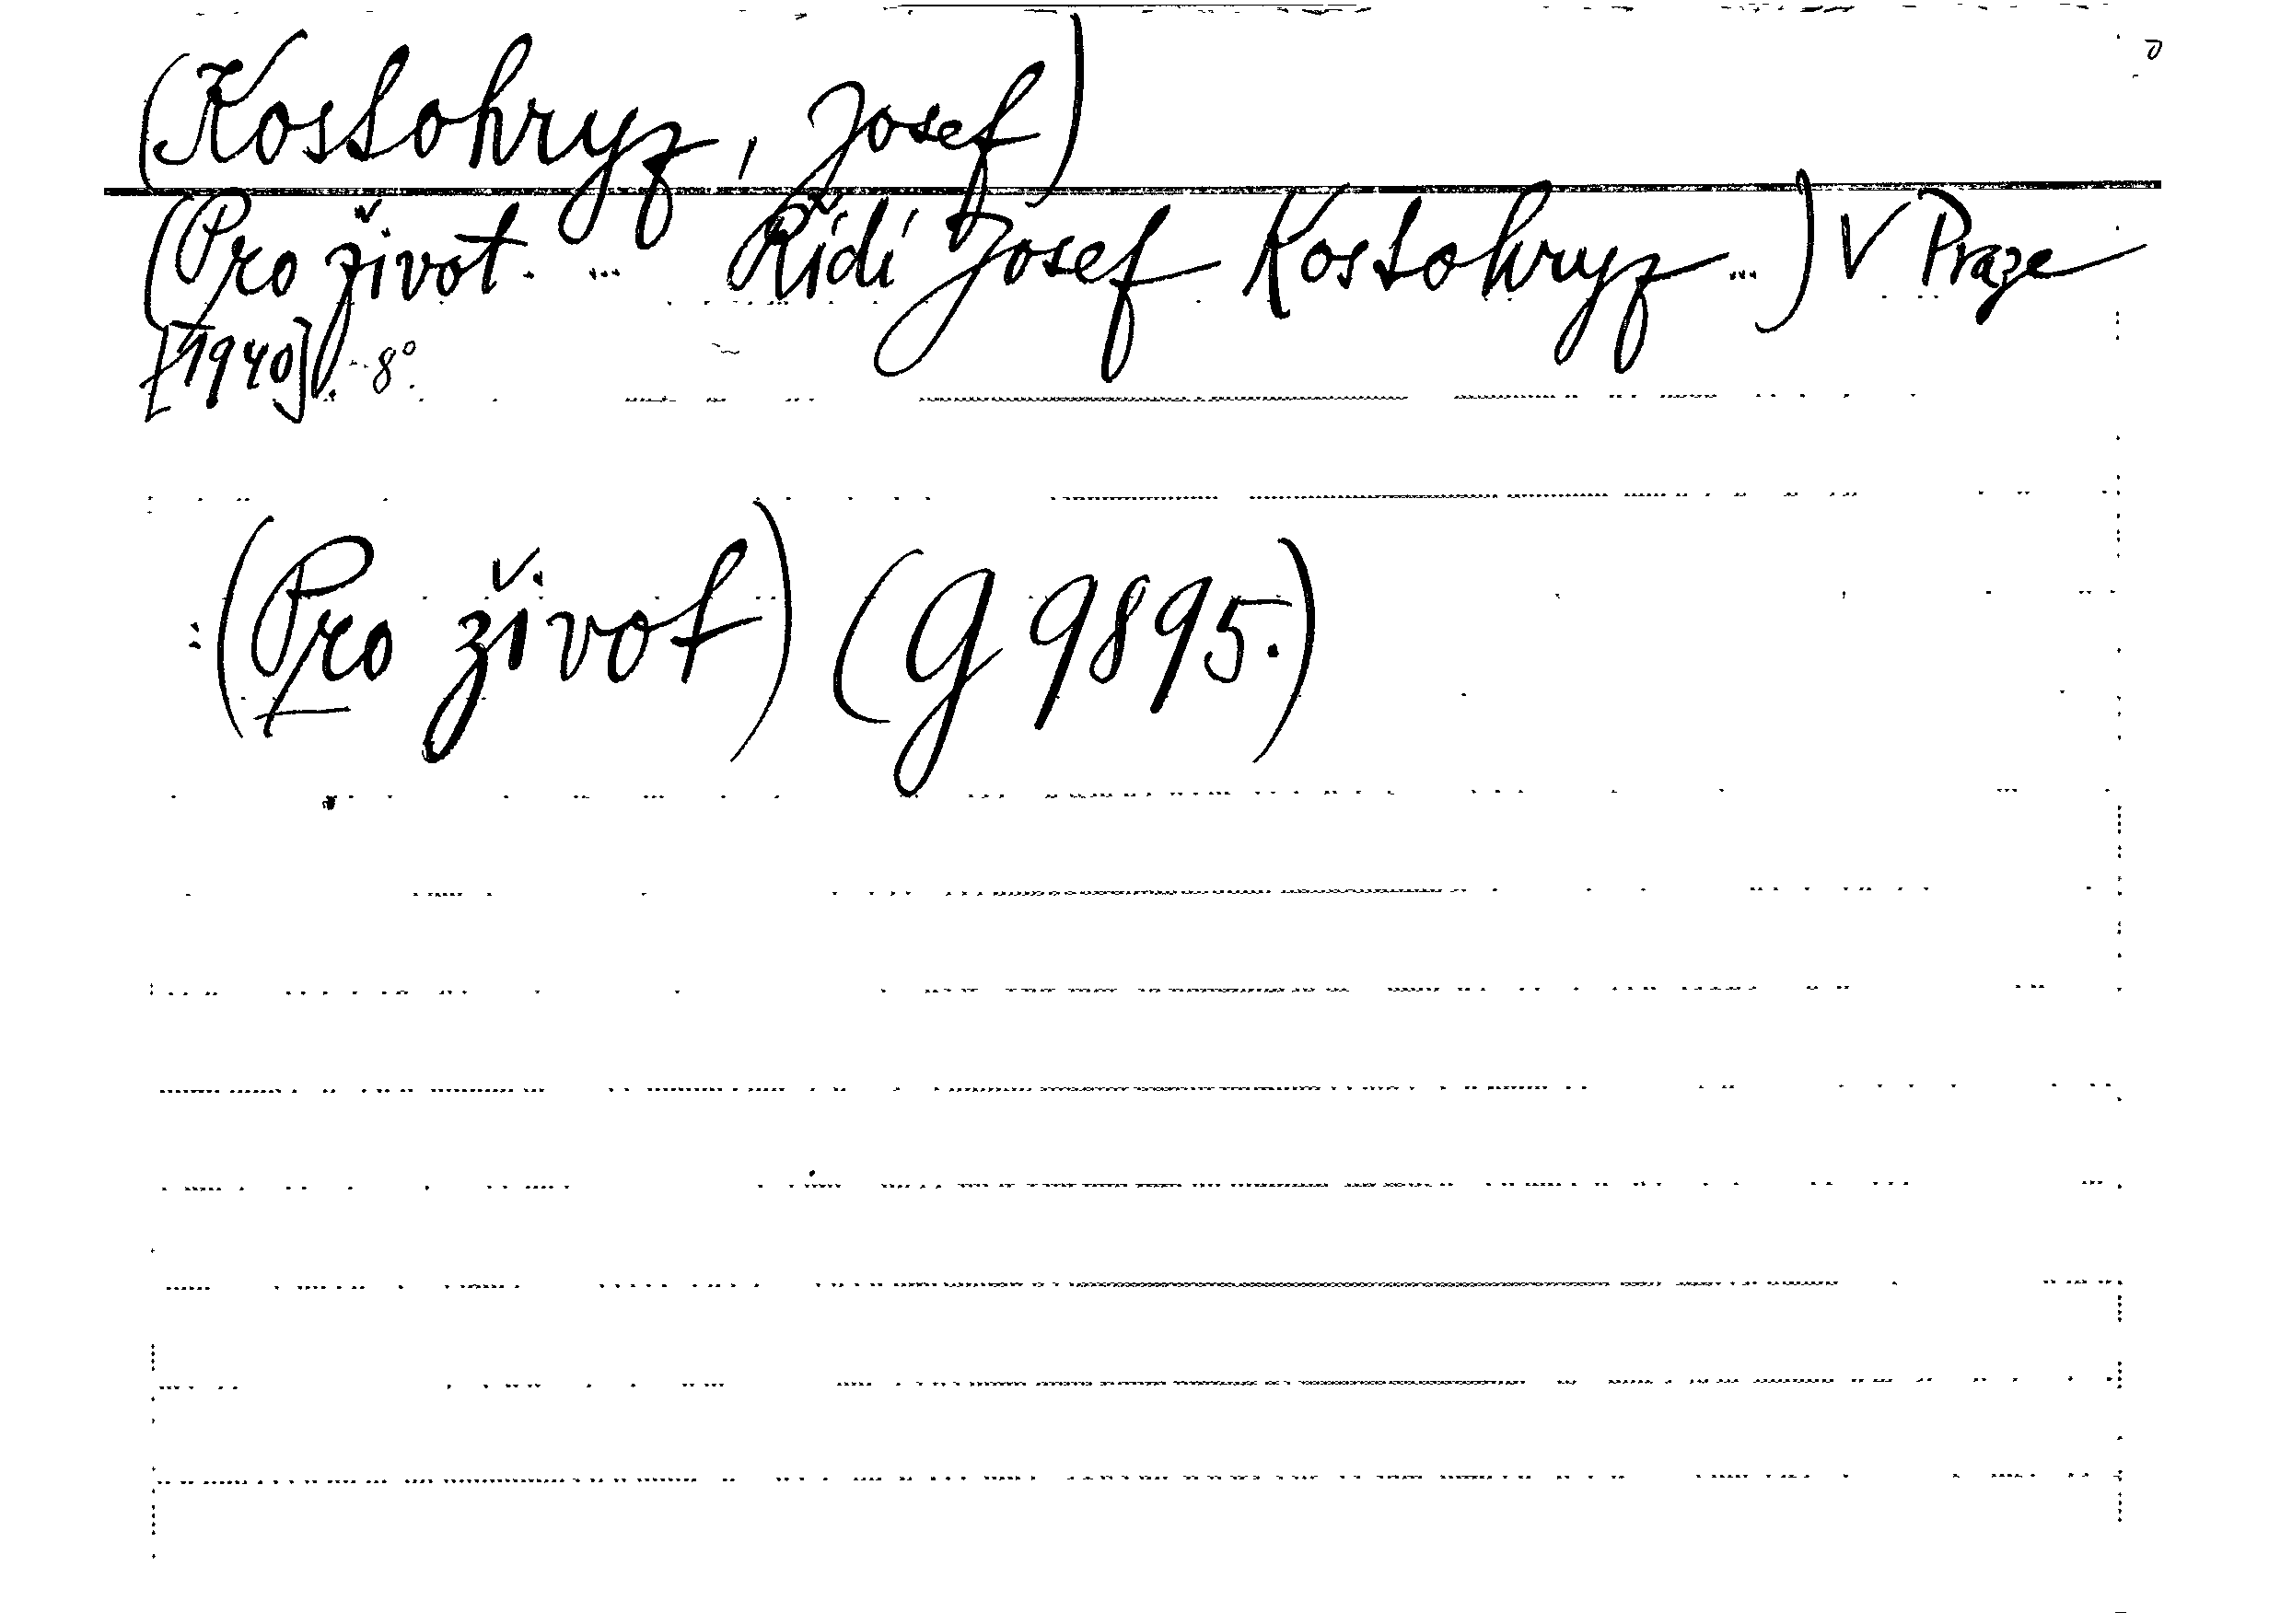 (Kostohryz, Josef)
(Pro život. ... Řídí Josef Kostohryz ...) V Praze
[1940]. 8°.
: (Pro život) (G 9895.)